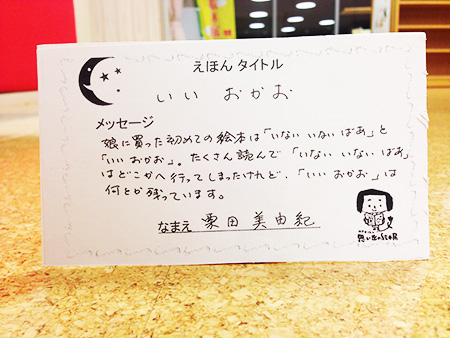 えほん タイトル
いい おかお
メッセージ
娘に買った初めての絵本は「いない いない ばあ」と
「いい おかお」。たくさん読んで「いない いない ばあ」
はどこかへ行ってしまったけれど、「いい おかお」は
何とか残っています。
なまえ 栗田 美由紀